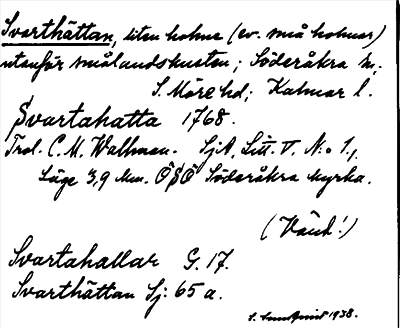 Svarthättan, liten holme (ev. små holmar)
utanför smålandskusten; Söderåkra sn,
S. Möre hd; Kalmar l.
Svartahatta 1768.
Trol. C. M. Wallman. SjA, Litt. V, N:o 1,
Läge 3,9 km. ÖSÖ Söderåkra kyrka.
(Vänd!)
Svartahallar G. 17.
Svarthättan Sj: 65 a.
1938.